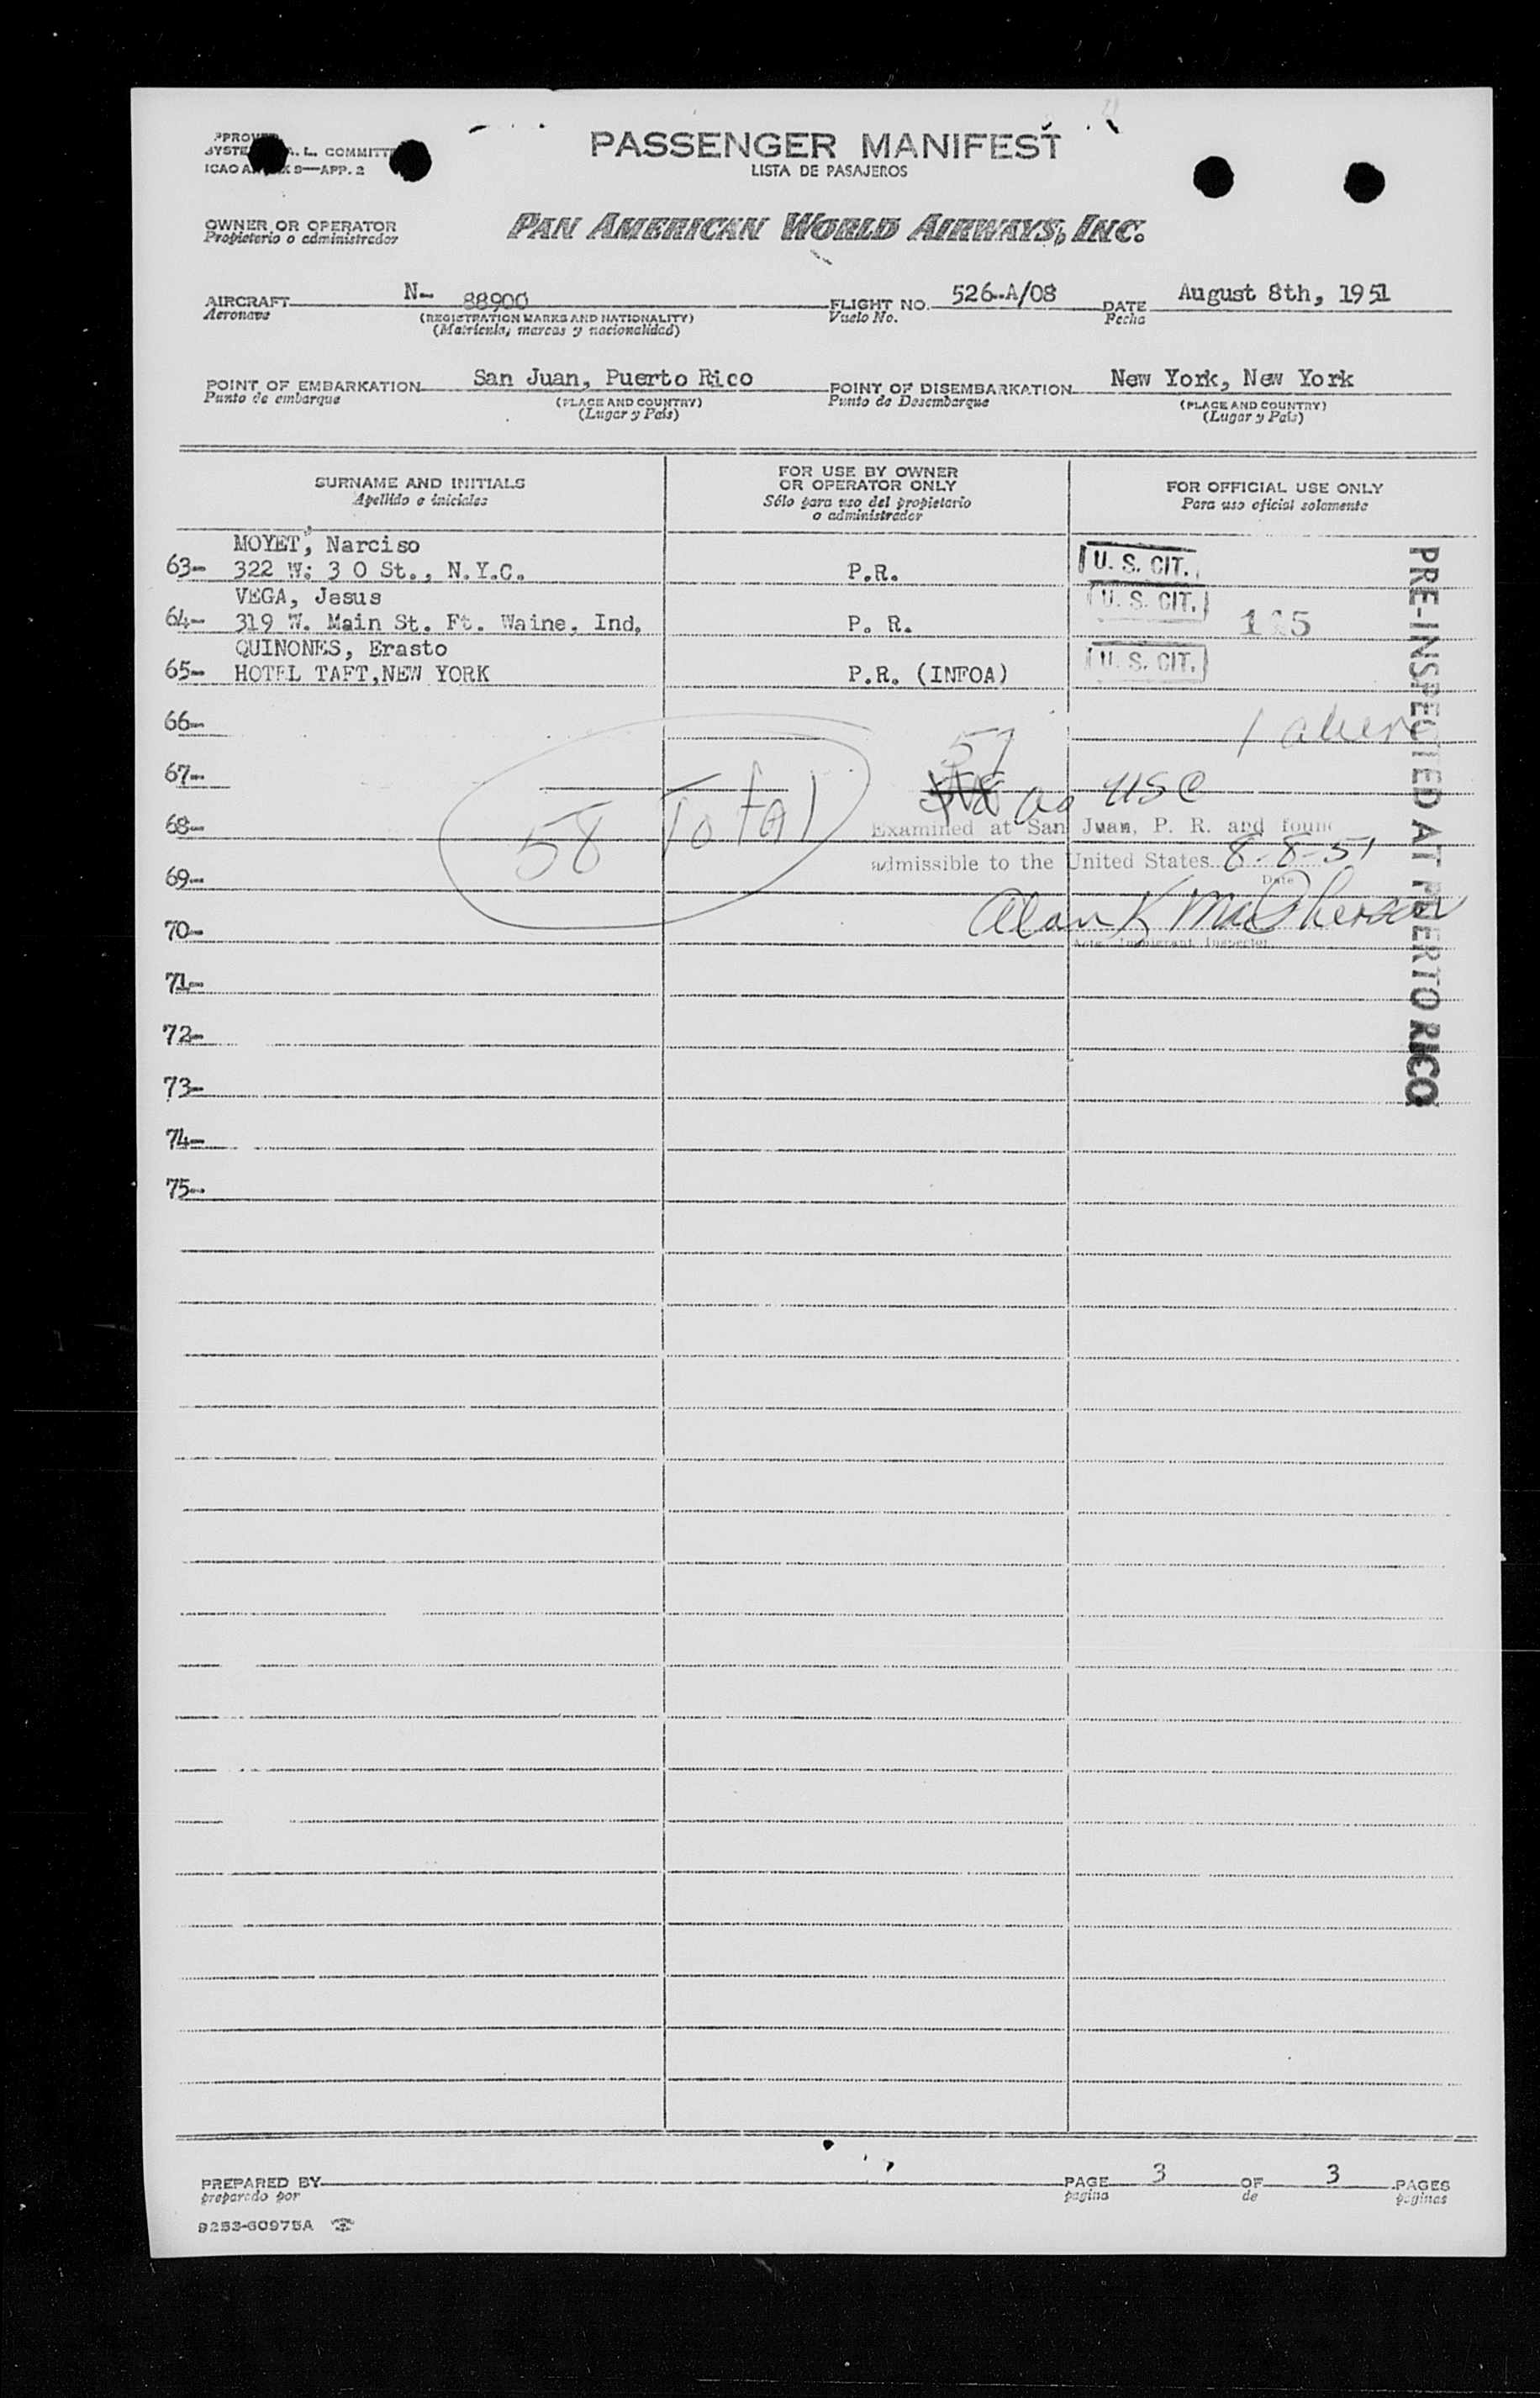 PASSENGER MANIFEST
LISTA DE PASAJEROS
ICAO
APP. 2
OWNER OR OPERATOR
Propietario o administrador
PAN AMERICAN WORLD AIRWAYS, INC.
AIRCRAFT N- 88900 FLIGHT NO. 526-A/08 DATE August 8th, 1951
Aeronave (REGISTRATION MARKS AND NATIONALITY) Vuelo No. Fecha
(Matricula, marcas y nacionalidad)
POINT OF EMBARKATION San Juan, Puerto Rico POINT OF DISEMBARKATION New York, New York
Punto de embarque (PLACE AND COUNTRY) Punto de Desembarque (PLACE AND COUNTRY)
(Lugar y País) (Lugar y País)
SURNAME AND INITIALS
Apellido e iniciales
FOR USE BY OWNER
OR OPERATOR ONLY
Sólo para uso del propietario
o administrador
FOR OFFICIAL USE ONLY
Para uso oficial solamente
MOYET, Narciso
63- 322 W: 3 0 St., N.Y.C. P.R. U. S. CIT.
VEGA, Jesus
64- 319 W. Main St. Ft. Waine. Ind. P. R. U. S. CIT.
QUINONES, Erasto
65- HOTEL TAFT,NEW YORK P.R. (INFOA) U. S. CIT.
66- 1 alien
57
67- as USC
58 Total
68- Examined at San Juan, P. R. and found
admissible to the United States 8-8-51
69- Date
Alan K MacPherson
70- Immigrant Inspector
71-
72-
73-
74-
75-
PRE-INSPECTED AT PUERTO RICO
PREPARED BY PAGE 3 OF 3 PAGES
preparado por pagina de paginas
9253-60975A